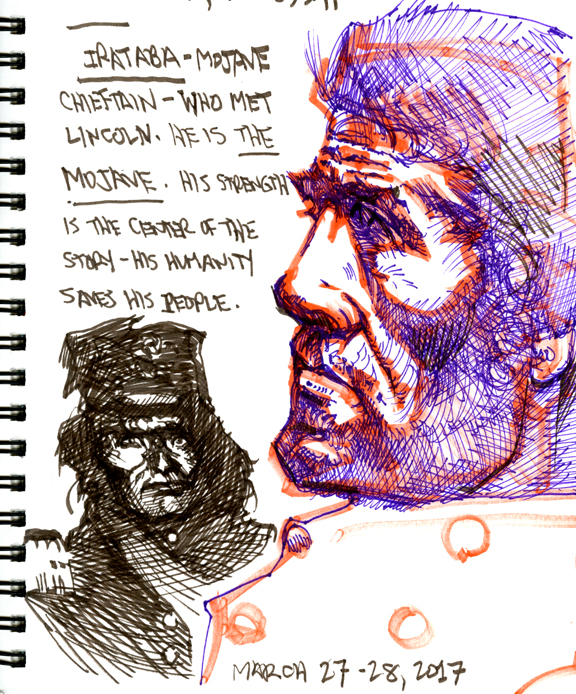 IRATABA - MOJAVE
CHIEFTAIN - WHO MET
LINCOLN. HE IS THE
MOJAVE. HIS STRENGTH
IS THE CENTER OF THE
STORY - HIS HUMANITY
SAVES HIS PEOPLE.
MARCH 27-28, 2017